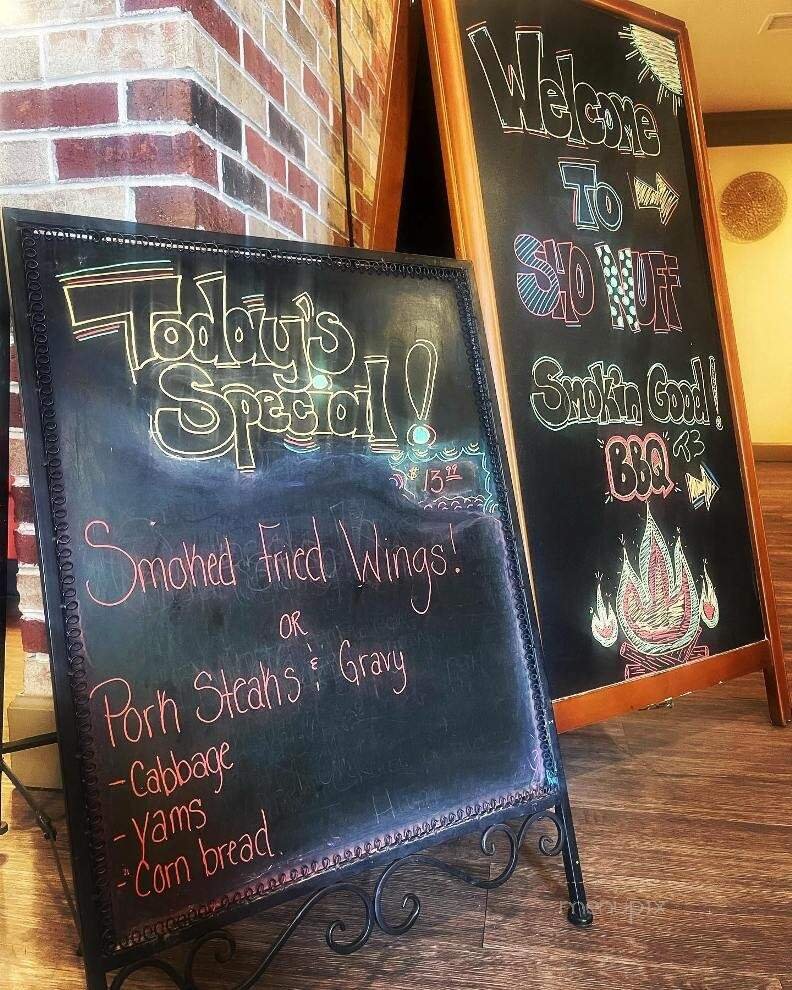 Today's
Special!
$13.99
Smoked Fried Wings!
OR
Pork Steaks & Gravy
-Cabbage
-Yams
-Corn bread
Welcome
To
SHO NUFF
Smokin Good!
BBQ
menupix